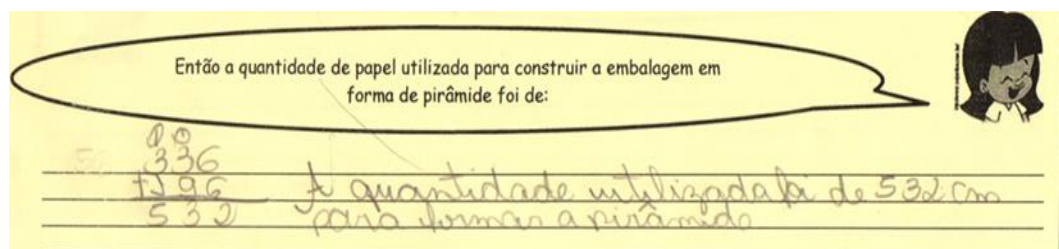 Então a quantidade de papel utilizada para construir a embalagem em
forma de pirâmide foi de:
336
+196 A quantidade utilizada foi de 532 cm
532 para formar a pirâmide